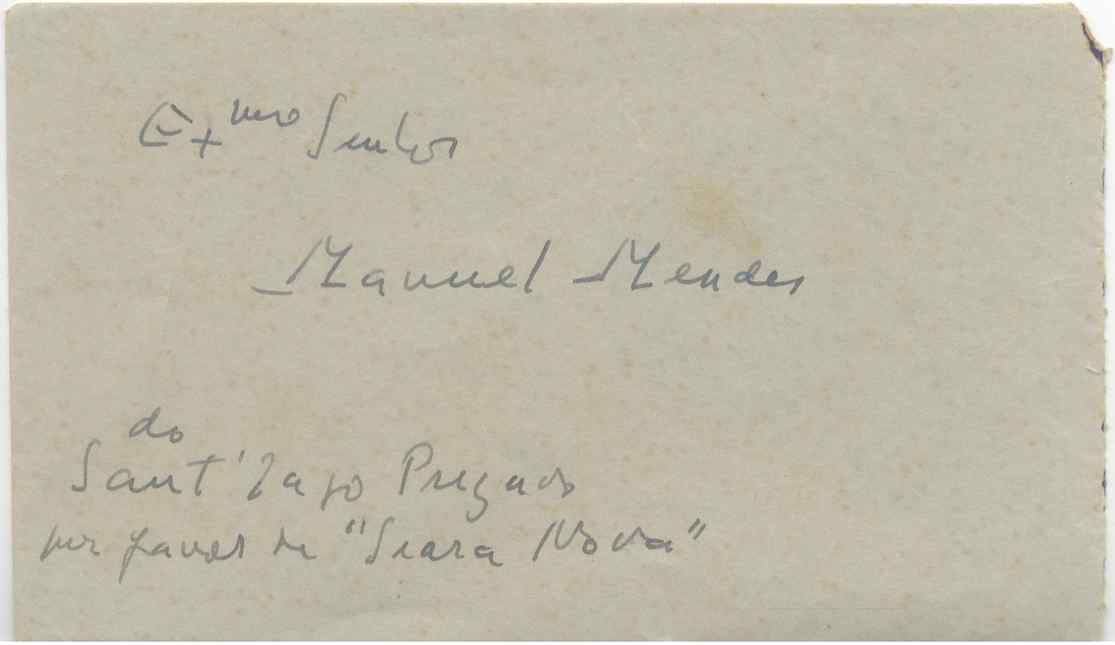 Exmo Senhor
Manuel Mendes
do
Sant'Iago Prezado
por favor da "Seara Nova"